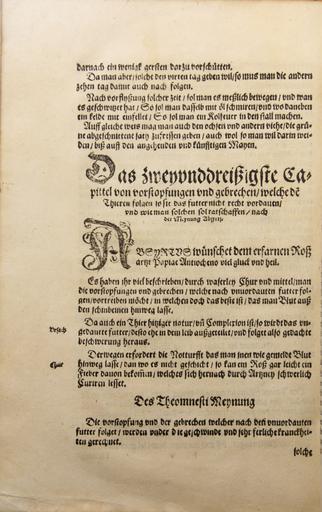 darnach ein wenigk gersten darzu vorschütten.
Da man aber / solche den vierten tag geben wil / so mus man die andern
zehen tag damit auch nach folgen.
Nach verfliessung solcher zeit / sol man es meßlich bewegen / und wan
es geschwitzet hat / So sol man dasselb mit öl schmiren / und wo daneben
ein kelde mit einfellet / So sol man ein Kolfeuer in den stall machen.
Auff gleiche weis mag man auch den ochsen und andern viehe / die grü-
ne abgeschnittene saty zufressen geben / auch wol so man wil darin wei-
den / biß auff den angehenden und künfftigen Mayen.
Das zweyunddreißigste Ca-
pittel von vorstopfungen und gebrechen / welche dē
Thieren folgen so sie das futter nicht recht vordauen /
und wie man solchen sol ratschaffen / nach
der Meynung Absyrti.
ABSYRTVS wünschet dem erfarnen Roß
artzt Papiae Antiocheno viel gluck und heil.
Es haben ihr viel beschrieben / durch waserley Chur und mittel / man
die vorstopfungen und gebrechen / welche nach unuordauten futter fol-
gen / vortreiben möcht / in welchen doch das beste ist / das man Blut auß
den schinbeinen hinweg lasse.
Da auch ein Thier hitziger notur / uñ Complexion ist / so wirdt das un-
gedauete futter / desto ehr in dem leib außgeteilet / und folget also gedachte
beschwerung heraus.
Derwegen erfordert die Notturfft das man inen wie gemelet Blut
hinweg lasse / dan wo es nicht geschicht / so kan ein Roß gar leicht ein
Fieber dauon bekomen / welches sich hernach durch Artzney schwerlich
Curiren lesset.
Chur
Des Theomnesti Meynung
Die vorstopfung und der gebrechen welcher nach den unuordauten
futter folget / werden under die geschwinde und sehr ferliche kranckhei-
ten gerechnet.
solche